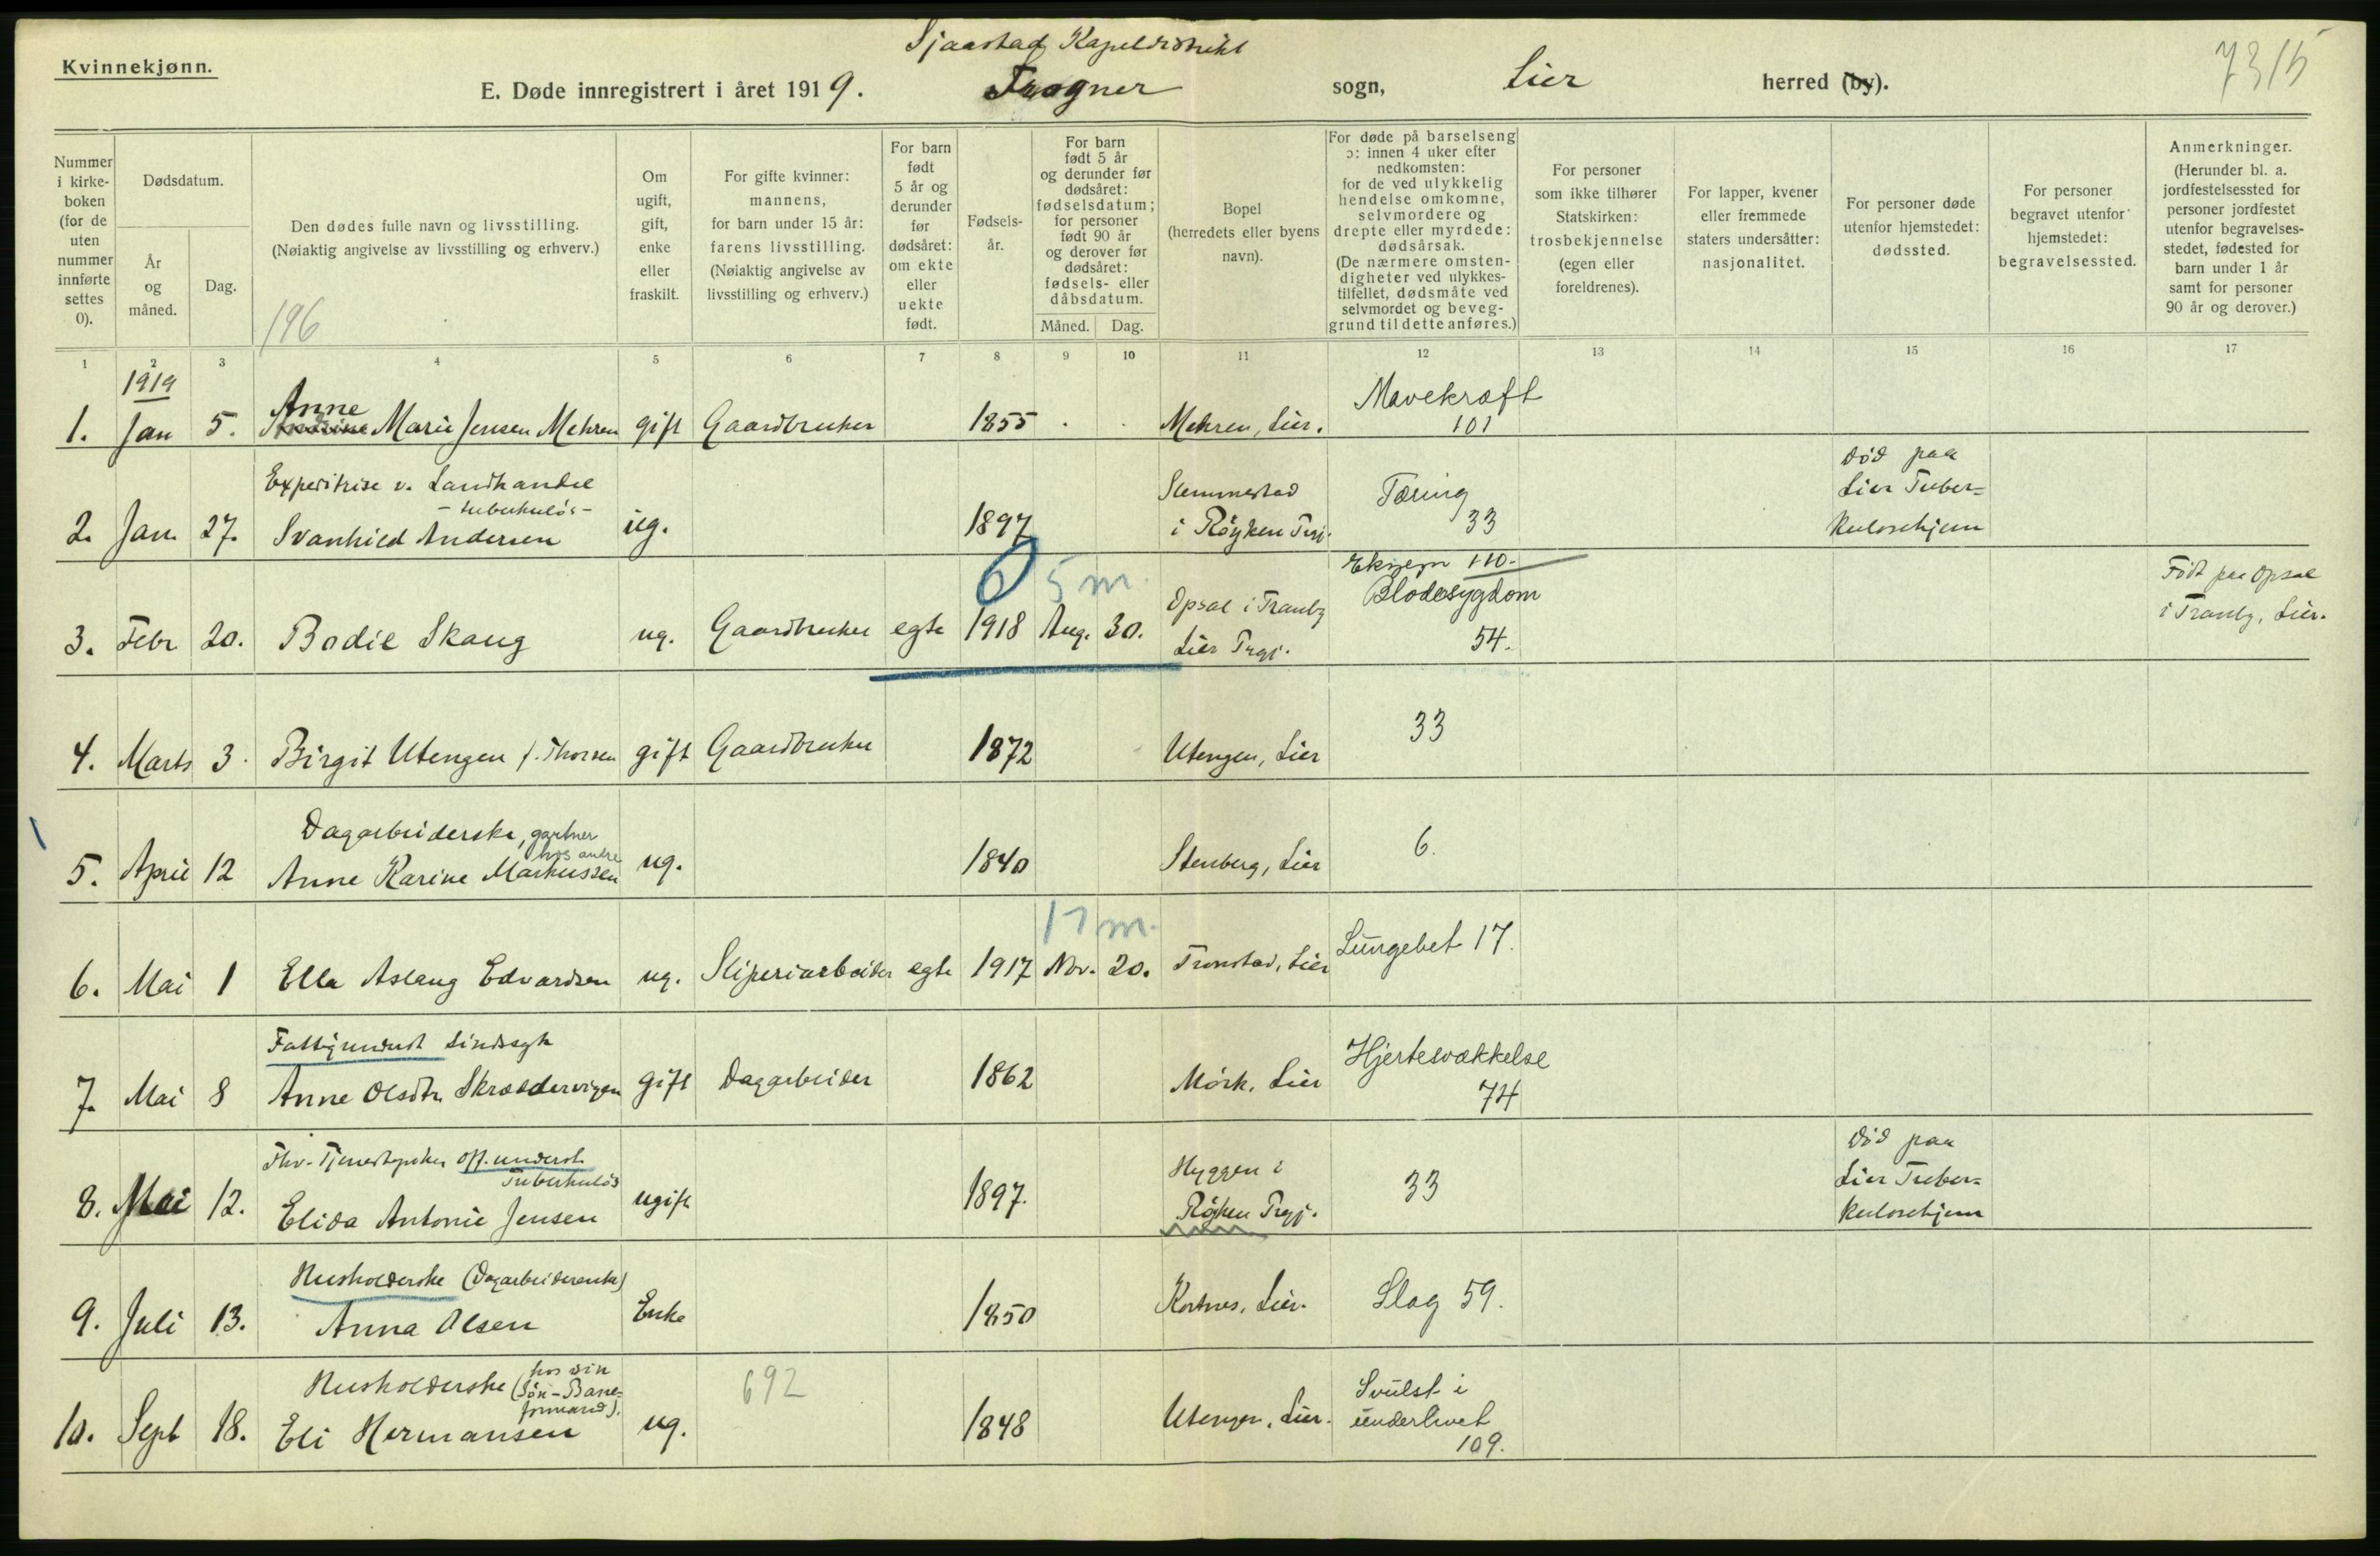 Kvinnekjønn.
Sjaastad Kapeldistrikt
7315
E. Døde innregistrert i året 1919. Frogner sogn, Lier herred (by).
Nummer i kirke- boken (for de uten nummer innførte settes 0).
Dødsdatum.
År og måned.
Dag.
Den dødes fulle navn og livsstilling.
(Nøiaktig angivelse av livsstilling og erhverv.)
196
Om ugift, gift, enke eller fraskilt.
For gifte kvinner: mannens, for barn under 15 år: farens livsstilling. (Nøiaktig angivelse av livsstilling og erhverv.)
For barn født 5 år og derunder før dødsåret: om ekte eller uekte født.
Fødsels- år.
For barn født 5 år og derunder før dødsåret: fødselsdatum; for personer født 90 år og derover før dødsåret: fødsels- eller dåbsdatum.
Måned. Dag.
Bopel (herredets eller byens navn).
For døde på barselseng ɔ: innen 4 uker efter nedkomsten: for de ved ulykkelig hendelse omkomne, selvmordere og drepte eller myrdede: dødsårsak. (De nærmere omsten- digheter ved ulykkes- tilfellet, dødsmåte ved selvmordet og beveg- grund til dette anføres.)
For personer som ikke tilhører Statskirken: trosbekjennelse (egen eller foreldrenes).
For lapper, kvener eller fremmede staters undersåtter: nasjonalitet.
For personer døde utenfor hjemstedet: dødssted.
For personer begravet utenfor hjemstedet: begravelsessted.
Anmerkninger. (Herunder bl. a. jordfestelsessted for personer jordfestet utenfor begravelses- stedet, fødested for barn under 1 år samt for personer 90 år og derover.)
1 2 3 4 5 6 7 8 9 10 11 12 13 14 15 16 17
1919
Anne Mavekræft
1. Jan 5. Marie Jensen Mehren gift Gaardbruker 1855 Mehren, Lier. 101
Expeditrise v. Landhandel Slemmestad Tæring Død paa
- tuberkuløs - Lier Tuber=
2. Jan. 27. Svanhild Andersen ug. 1897 i Røyken Prgj. 33 kulosehjem
6 5 m. Eksem 110.
Opsal i Tranby Blodsygdom Født paa Opsal
3. Febr. 20. Bodil Skaug ug. Gaardbruker egte 1918 Aug. 30. Lier Prgj. 54. i Tranby, Lier.
4. Marts 3. Birgit Utengen f. Thorsen gift Gaardbruker 1872 Utengen, Lier 33
Dagarbeiderske, gartner
hos andre
5. April 12 Anne Karine Markussen ug. 1840 Stenberg, Lier 6.
17 m.
6. Mai 1 Ella Aslaug Edvardsen ug. Sliperiarbeider egte 1917 Nov. 20. Tronstad, Lier Lungebet 17.
Fattigunderst Sindssyk Hjertesvækkelse
7. Mai 8 Anne Olsdtr. Skræddervigen gift Dagarbeider 1862 Mörk, Lier 74
Fhv. Tjenestepike off. underst. Hyggen i Død paa
Tuberkuløs Lier Tuber=
8. Mai 12. Elida Antonie Jensen ugift 1897. Røyken Prgj. 33 kulosehjem
Husholderske (Dagarbeiderenke)
9. Juli 13. Anna Olsen Enke 1850 Kortnes, Lier. Slag 59.
Husholderske (hos sin 692 Svulst i
Søn - Bane=
formand). underlivet
10. Sept 18. Eli Hermansen ug. 1848 Utengen, Lier. 109.